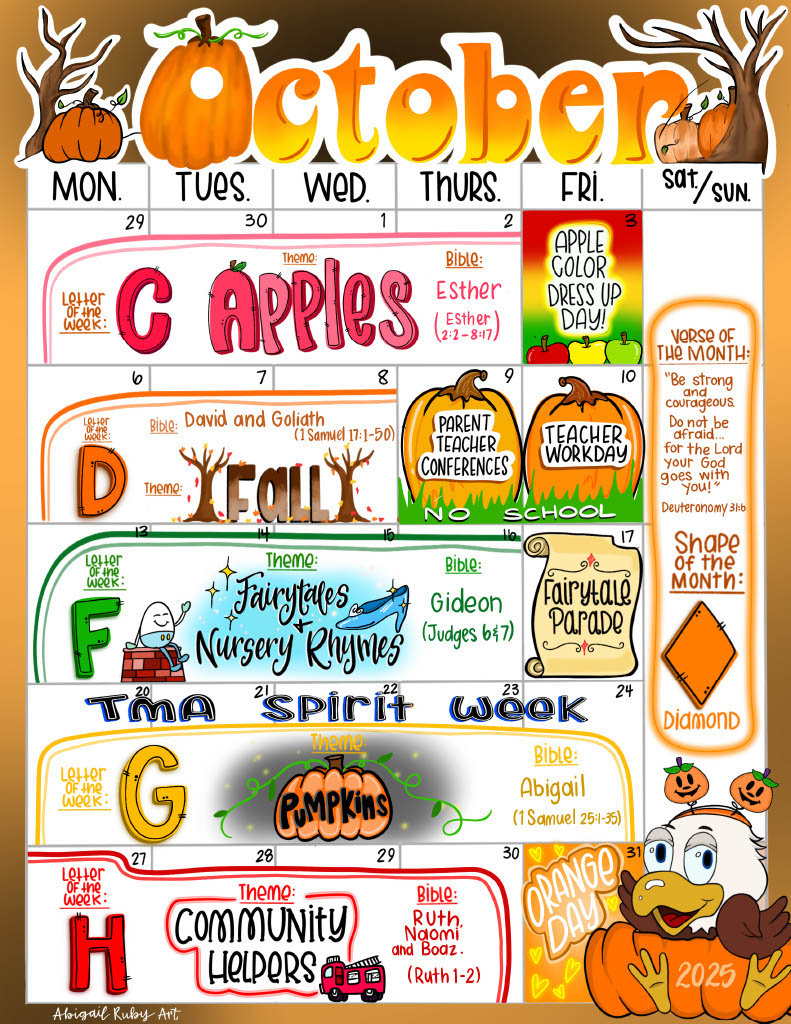 October
MON. TUES. WED. THURS. FRI. Sat./Sun.
29 30 1 2 3
Letter of the week:
C
Theme:
Apples
Bible:
Esther
(Esther
2:2-8:17)
APPLE
COLOR
DRESS UP
DAY!
6 7 8 9 10
Letter
of the
week:
D
Bible: David and Goliath
(1 Samuel 17:1-50)
Theme: Fall
PARENT
TEACHER
CONFERENCES
TEACHER
WORKDAY
NO SCHOOL
13 14 15 16 17
Letter
of the
week:
F
Theme:
Fairytales
+
Nursery Rhymes
Bible:
Gideon
(Judges 6&7)
Fairytale
Parade
20 21 22 23 24
TMA Spirit Week
Letter
of the
week:
G
Theme
Pumpkins
Bible:
Abigail
(1 Samuel 25:1-35)
27 28 29 30 31
Letter
of the
week:
H
Theme:
Community
Helpers
Bible:
Ruth,
Naomi
and Boaz.
(Ruth 1-2)
ORANGE
DAY
Verse of
the Month:
"Be strong
and
courageous.
Do not be
afraid...
for the Lord
your God
goes with
you!"
Deuteronomy 31:6
Shape
of the
Month:
Diamond
2025
Abigail Ruby Art